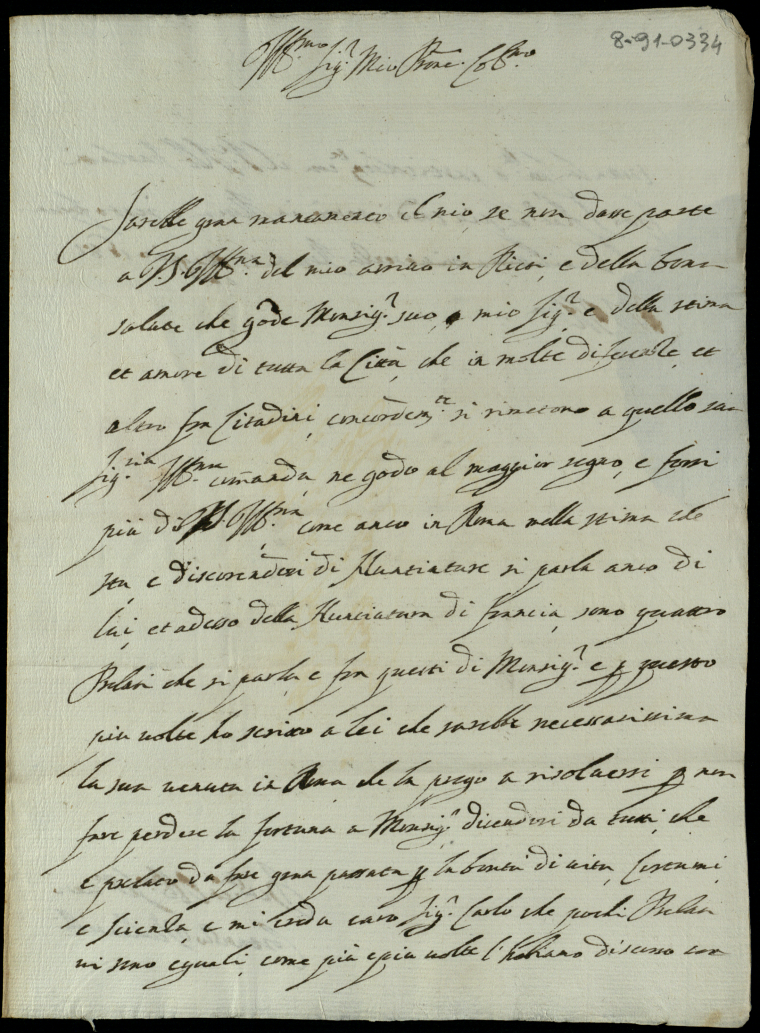 8-91-0334
Ill.mo Sig.r Mio Prone. Col.mo
Sarebbe gran mancamento il mio, se non dasse parte
a V.S. Ill.ma del mio arrivo in Rieti, e della bona
salute che gode Monsig.r suo, e mio Sig.r e della stima
et amore di tutta la Città, che in molte diferenze, et
altro fra Citadini, concordem.te si rimetono a quello sua
Sig.ria Ill.ma comanda, ne godo al maggior segno, e forsi
più di V.S. Ill.ma come anco in Roma nella stima che
sta, e discorendosi di Nuntiature si parla anco di
lui, et adesso della Nunciatura di francia, sono quattro
Prelati che si parla, e fra questi di Monsig.r e p questo
più volte ho scritto a lei che sarebbe necessarissima
la sua venuta in Roma che la prego a risolversi p non
fare perdere la fortuna a Monsig.r dicendosi da tutti, che
è prelato da fare gran passata p la bontà di vita, Costumi,
e scienza, e mi creda caro Sig.r Carlo che pochi Prelati
vi sono eguali, come più e più volte l'habiamo discorso con